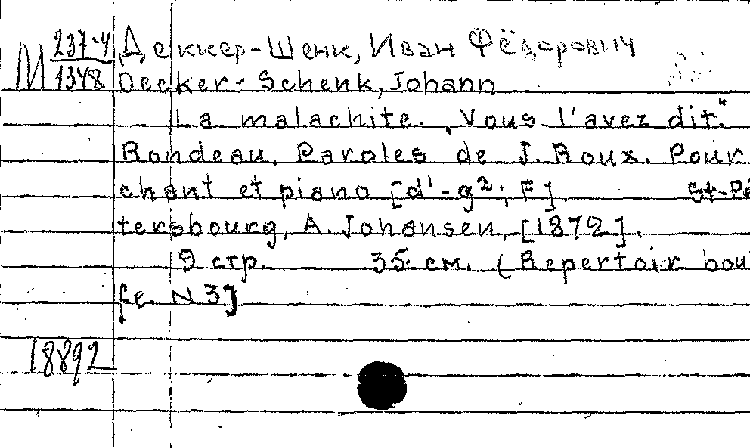 М 237-4/1348
Деккер-Шенк, Иван Фёдорович
Decker-Schenk, Johann
La malachite. „Vous l'avez dit."
Rondeau. Paroles de J. Roux. Pour
chant et piano [d'-g²; F]. St-Pé-
tersbourg, A. Johansen, [1872].
9 стр. 35 см. (Repertoir bou
fe. N 3)
18892